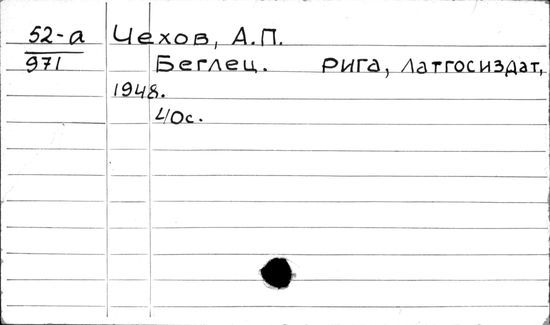 52-а Чехов, А.П.
971 Беглец. Рига, Латгосиздат,
1948.
40с.